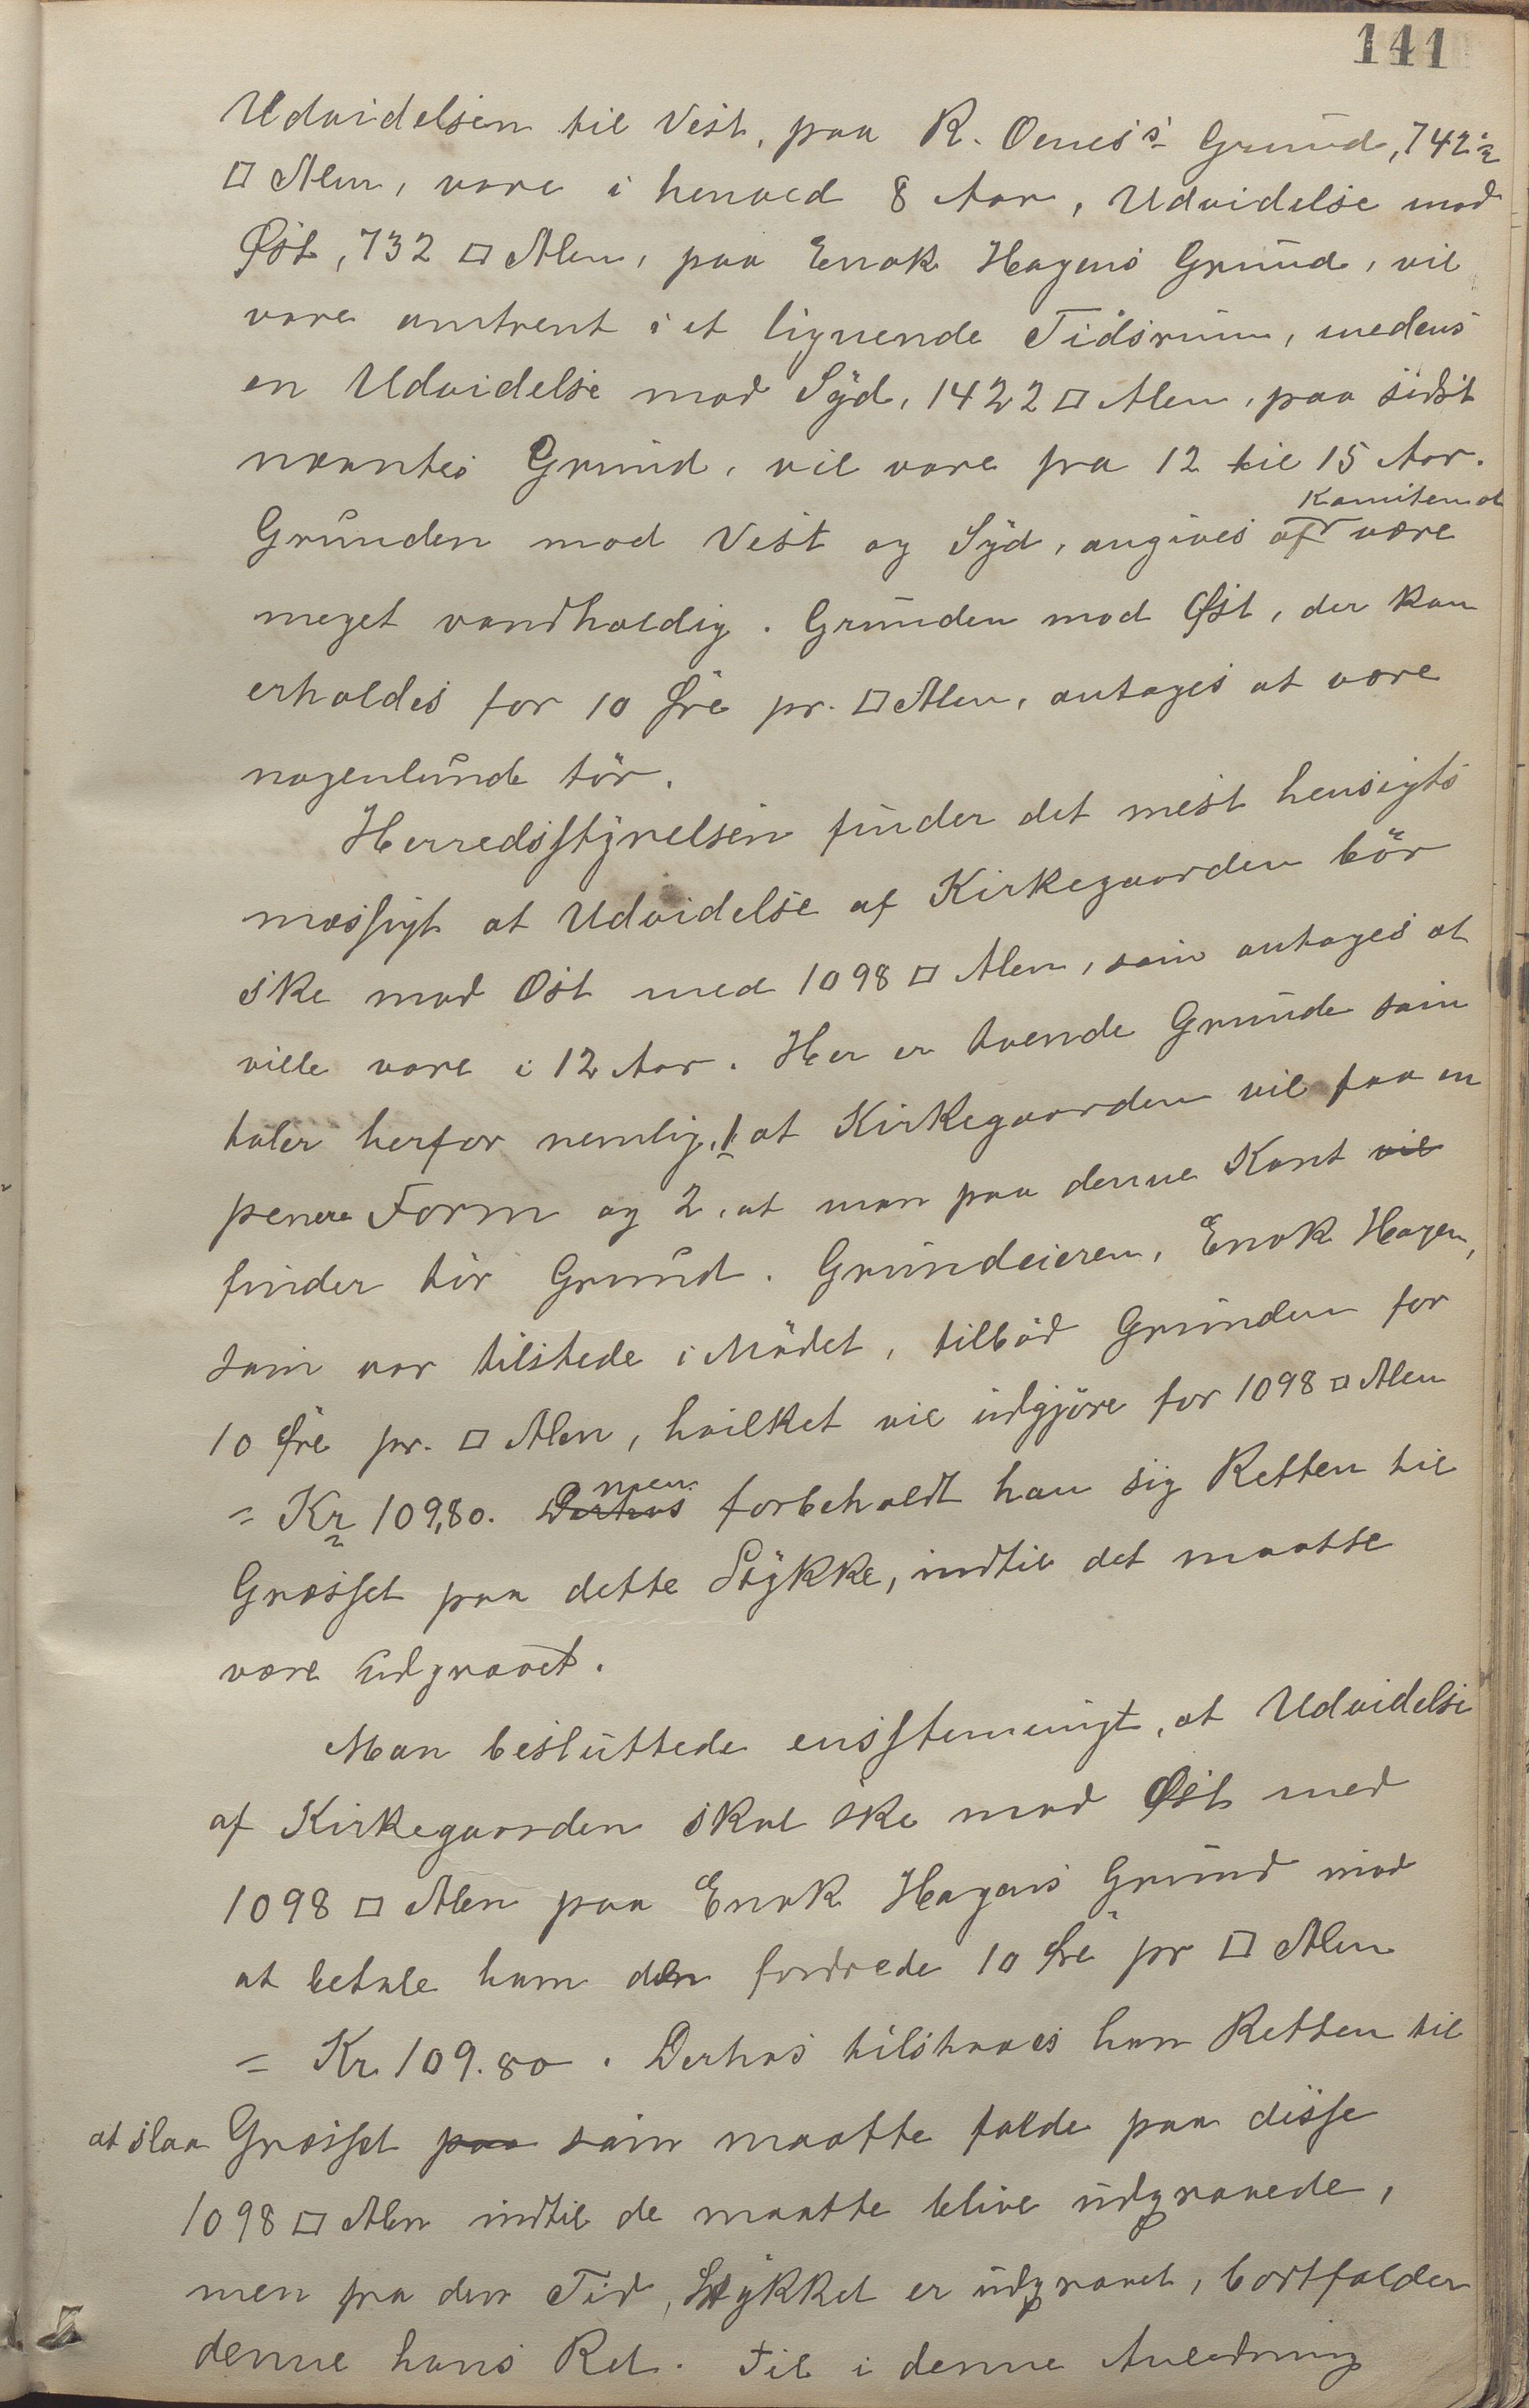 141
Udvidelsen til Vest, paa R. Oenes's Grund, 742
□ Alen, vare i henved 8 Aar, Udvidelse mod
Øst, 732 □ Alen, paa Enok Hagens Grund, vil
vare omtrent i et lignende Tidsrum, medens
en Udvidelse mod Syd, 1422 □ Alen, paa sidst
nævntes Grund, vil vare fra 12 til 15 Aar.
Komiteen at
Grunden mod Vest og Syd, angives af være
meget vandholdig. Grunden mod Øst, der kan
erholdes for 10 Øre pr. □ Alen, antages at være
nogenlunde tör.
Herredsstyrelsen finder det mest hensigts
mæssigt at Udvidelse af Kirkegaarden bör
ske mod Øst med 1098 □ Alen, som antages at
ville vare i 12 Aar. Her er tvende Grunde som
taler herfor nemlig, 1 at Kirkegaarden vil faa en
penere Form og 2, at man paa denne Kant vil
finder tör Grund. Grundeieren, Enok Hagen,
som var tilstede i Mödet, tilböd Grunden for
10 Øre pr. □ Alen, hvilket vil udgjöre for 1098 □ Alen
men
= Kr 109,80. Derhos forbeholdt han sig Retten til
Græsset paa dette Stykke, indtil det maatte
være udgravet.
Man besluttede ensstemmigt, at Udvidelse
af Kirkegaarden skal ske mod Øst med
1098 □ Alen paa Enok Hagens Grund mod
at betale ham den fordrede 10 Øre pr □ Alen
= Kr. 109.80. Derhos tilstaaes ham Retten til
at slaa Græsset paa som maatte falde paa disse
1098 □ Alen indtil de maatte blive udgravede,
men fra den Tid, Stykket er udgravet, bortfalder
denne hans Ret. Til i denne Anledning